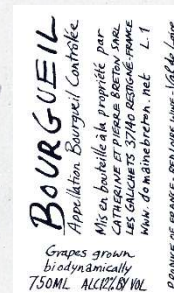 BOURGUEIL
Appellation Bourgueil Contrôlée
Mis en bouteille à la propriété par
CATHERINE ET PIERRE BRETON SARL
LES GALICHETS 37140 RESTIGNÉ-FRANCE
www.domainebreton.net L.1
PRODUCE OF FRANCE - RED LOIRE WINE - Val de Loire
Grapes grown
biodynamically
750ML ALC12%BY VOL